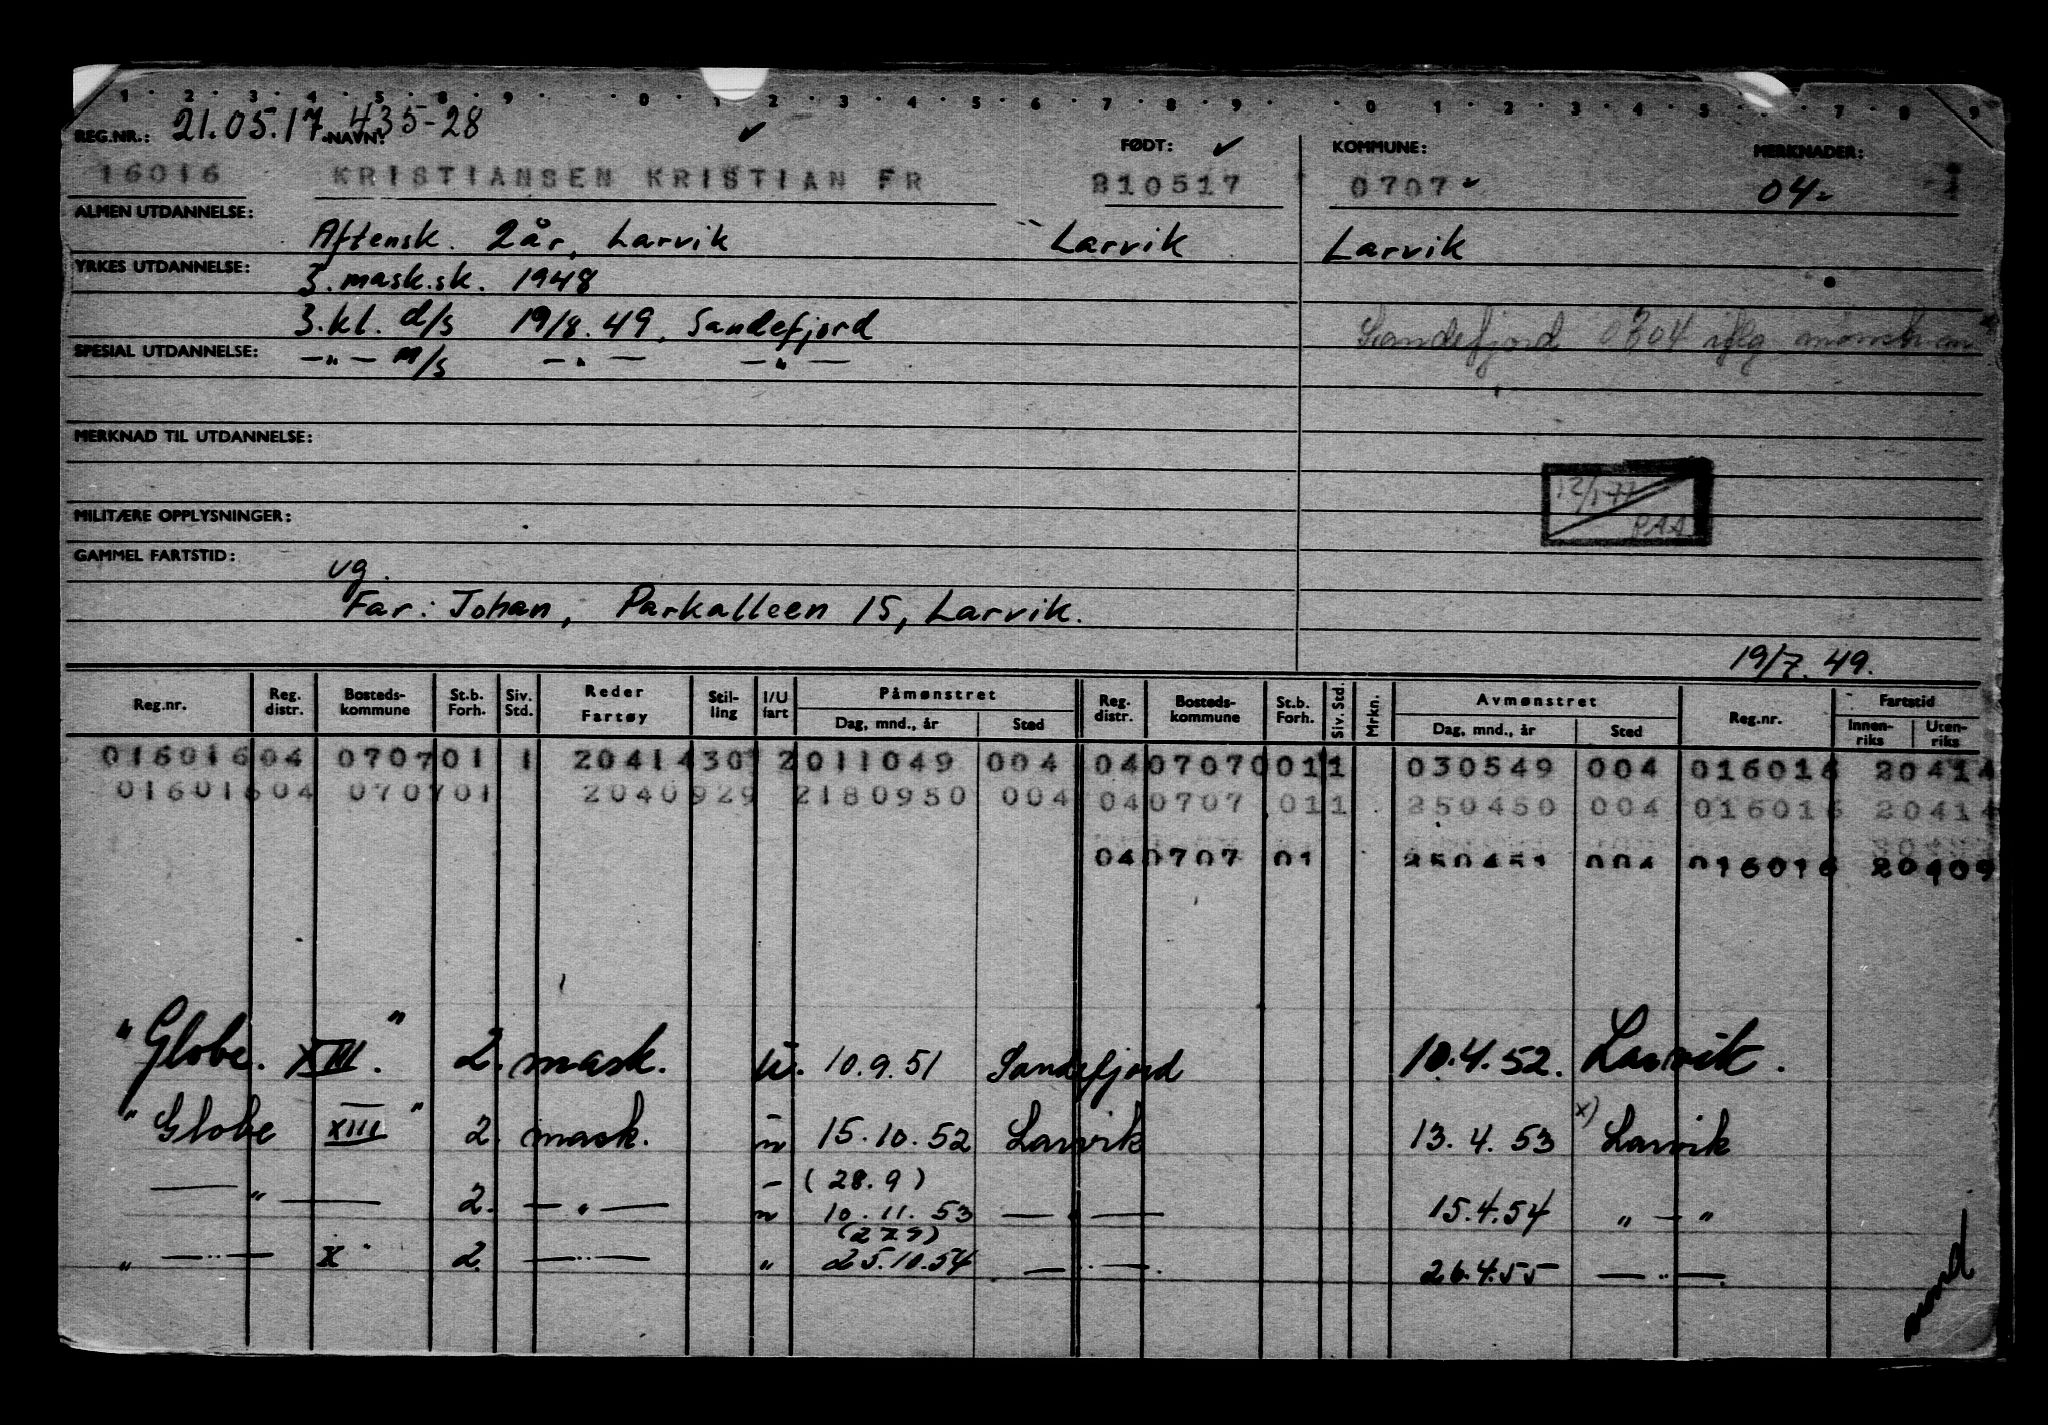 1 2 3 4 5 8 9 0 1 2 3 4 5 6 7 8 9 0 1 2 3 4 5 7 8 9
REG.NR.: 21.05.17 NAVN: 435-28 FØDT: KOMMUNE: MERKNADER:
16016 KRISTIANSEN KRISTIAN FR 210517 0707 04
ALMEN UTDANNELSE: Aftensk. 2 år, Larvik Larvik Larvik
YRKES UTDANNELSE: 3. mask.sk. 1948
3.kl. d/s 19/8.49, Sandefjord Sandefjord 0704 iflg mønstr
SPESIAL UTDANNELSE: —"— M/s —"— —"—
MERKNAD TIL UTDANNELSE:
12/1 77
MILITÆRE OPPLYSNINGER: RAA
GAMMEL FARTSTID: vg.
Far: Johan, Parkalleen 15, Larvik.
19/7.49.
Reg.nr. Reg. distr. Bosteds-kommune St.b. Forh. Siv. Std. Reder Fartøy Stil-ling I/U fart Påmønstret Dag, mnd., år Sted Reg. distr. Bosteds-kommune St.b. Forh. Siv. Std. Mrkn. Avmønstret Dag, mnd., år Sted Reg.nr. Fartstid Innen-riks Uten-riks
016016 04 0707 01 1 20414 30 2 011049 004 04 0707 0011 030549 004 016016 20414
016016 04 0707 01 20409 29 2 180950 004 04 0707 011 250450 004 016016 20414
04 0707 01 250451 004 016016 20409
"Globe. XIII." 2. mask. u. 10.9.51 Sandefjord 10.4.52. Larvik.
"Globe XIII" 2. mask. u 15.10.52 Larvik 13.4.53 x) Larvik
(28.9)
—"— 2. —"— u 10.11.53 —"— 15.4.54 "—"
(27.9)
" —"— X" 2. —"— " 25.10.54 —"— 26.4.55 —"—